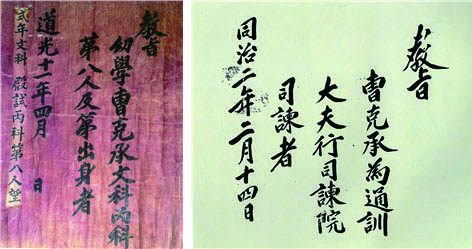 敎旨
幼學曺克承文科丙科
第八人及第出身者
道光十一年四月 日
式年文科 殿試丙科第八人望
敎旨
曺克承爲通訓
大夫行司諫院
司諫者
同治二年二月十四日